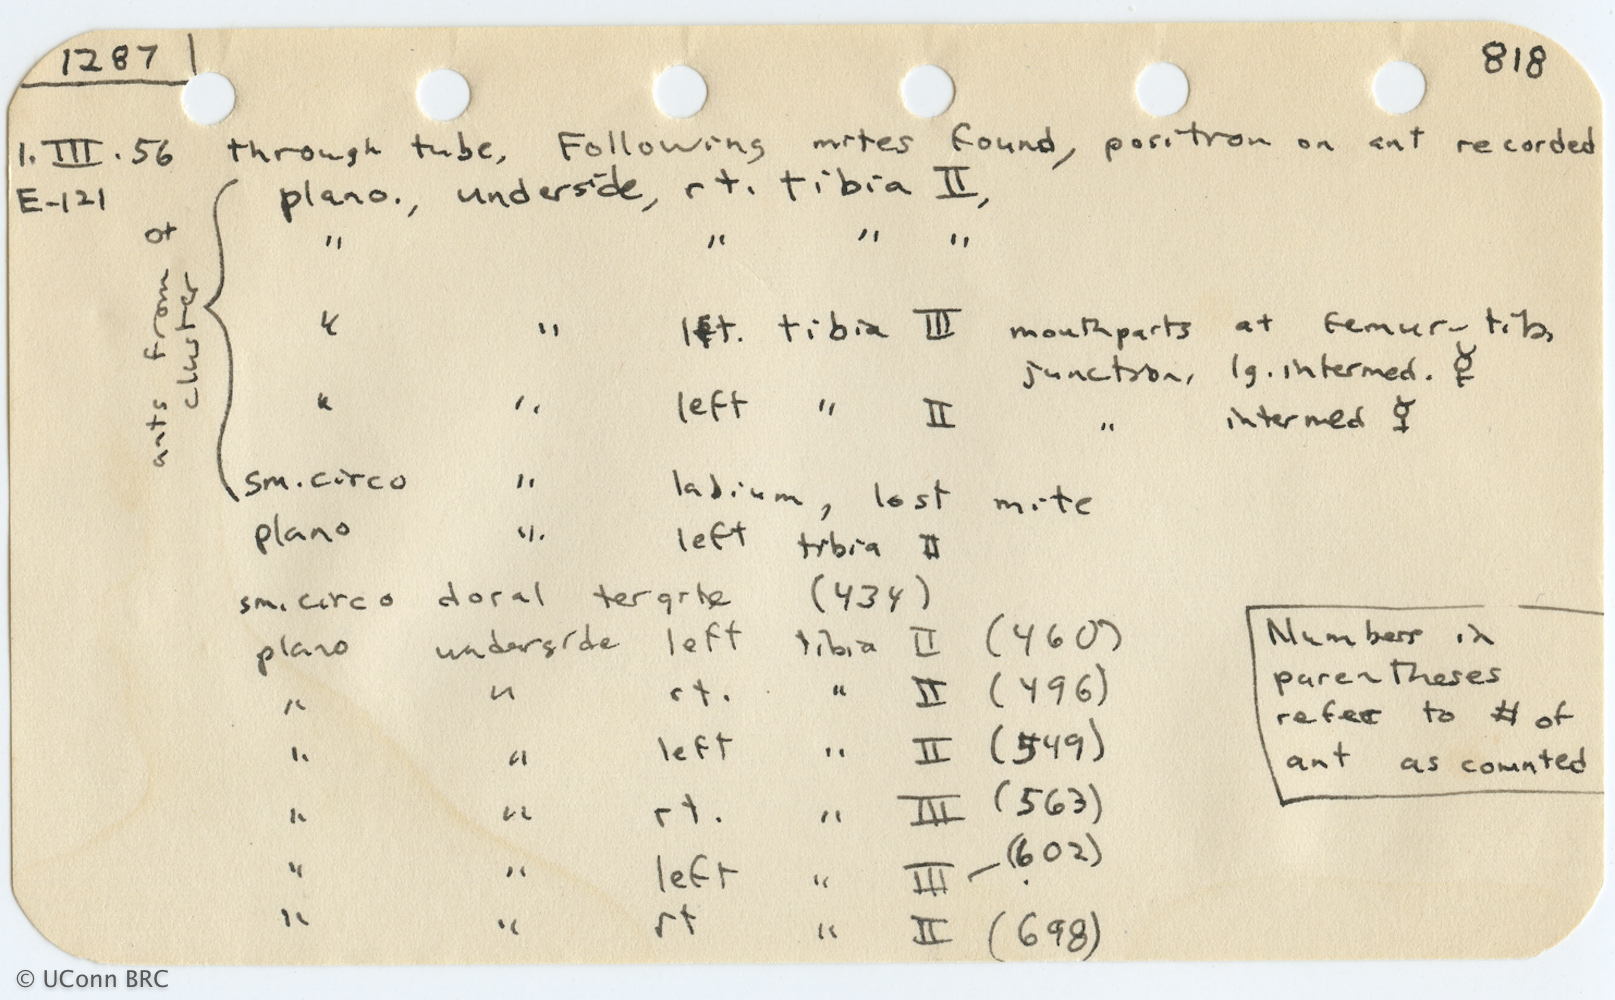 1287
818
1.III.56 through tube, Following mites found, position on ant recorded
E-121 plano., underside, rt. tibia II,
" " " "
" " lft. tibia III mouthparts at femur-tib,
junction, lg. intermed. ☿
" " left " II " intermed ☿
ants from ot
cluster
sm. circo " labium, lost mite
plano " left tibia II
sm. circo doral tergite (434)
plano underside left tibia II (460)
" " rt. " II (496)
" " left " II (549)
" " rt. " III (563)
" " left " III – (602)
" " rt " II (698)
Numbers in
parentheses
refer to # of
ant as counted
© UConn BRC